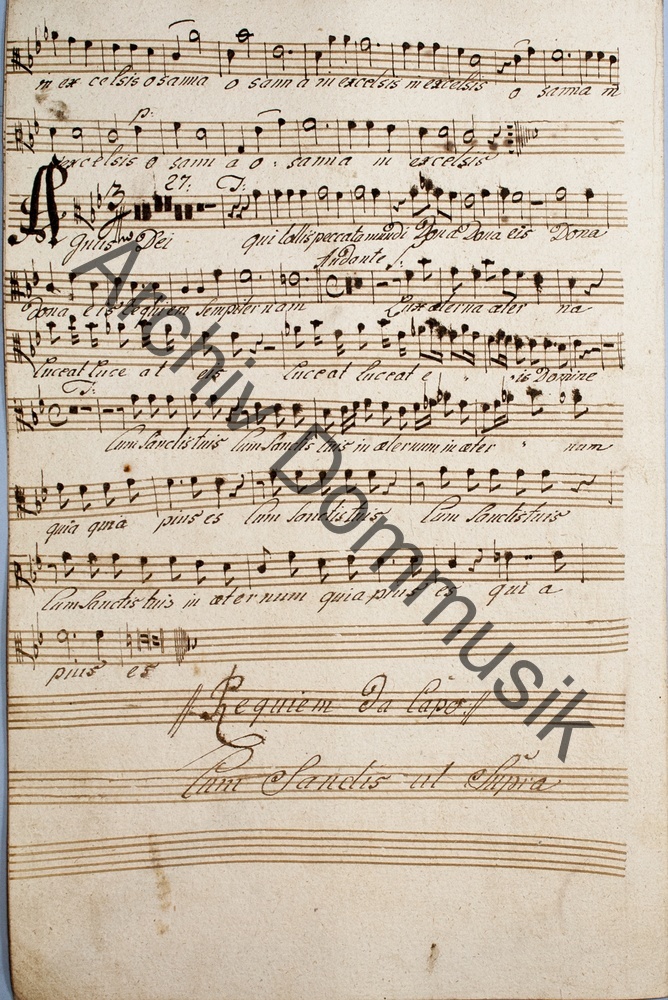 in excelsis osanna o sanna in excelsis in excelsis o sanna in
p:
excelsis o sanna o: sanna in excelsis
27: T:
Agnus Dei qui tollis peccata mundi Dona Dona eis Dona
Andante S:
Dona eis requiem sempiternam Lux æterna æter na
luceat luce at eis luceat luceat e " " is Domine
T:
Cum Sanctis tuis Cum Sanctis tuis in æternum in æter " nam
quia quia pius es Cum Sanctis tuis Cum Sanctis tuis
Cum Sanctis tuis in æternum quia pius es qui a
pius es
Requiem Da Capo
Cum Sanctis ut Supra
Archiv Dommusik